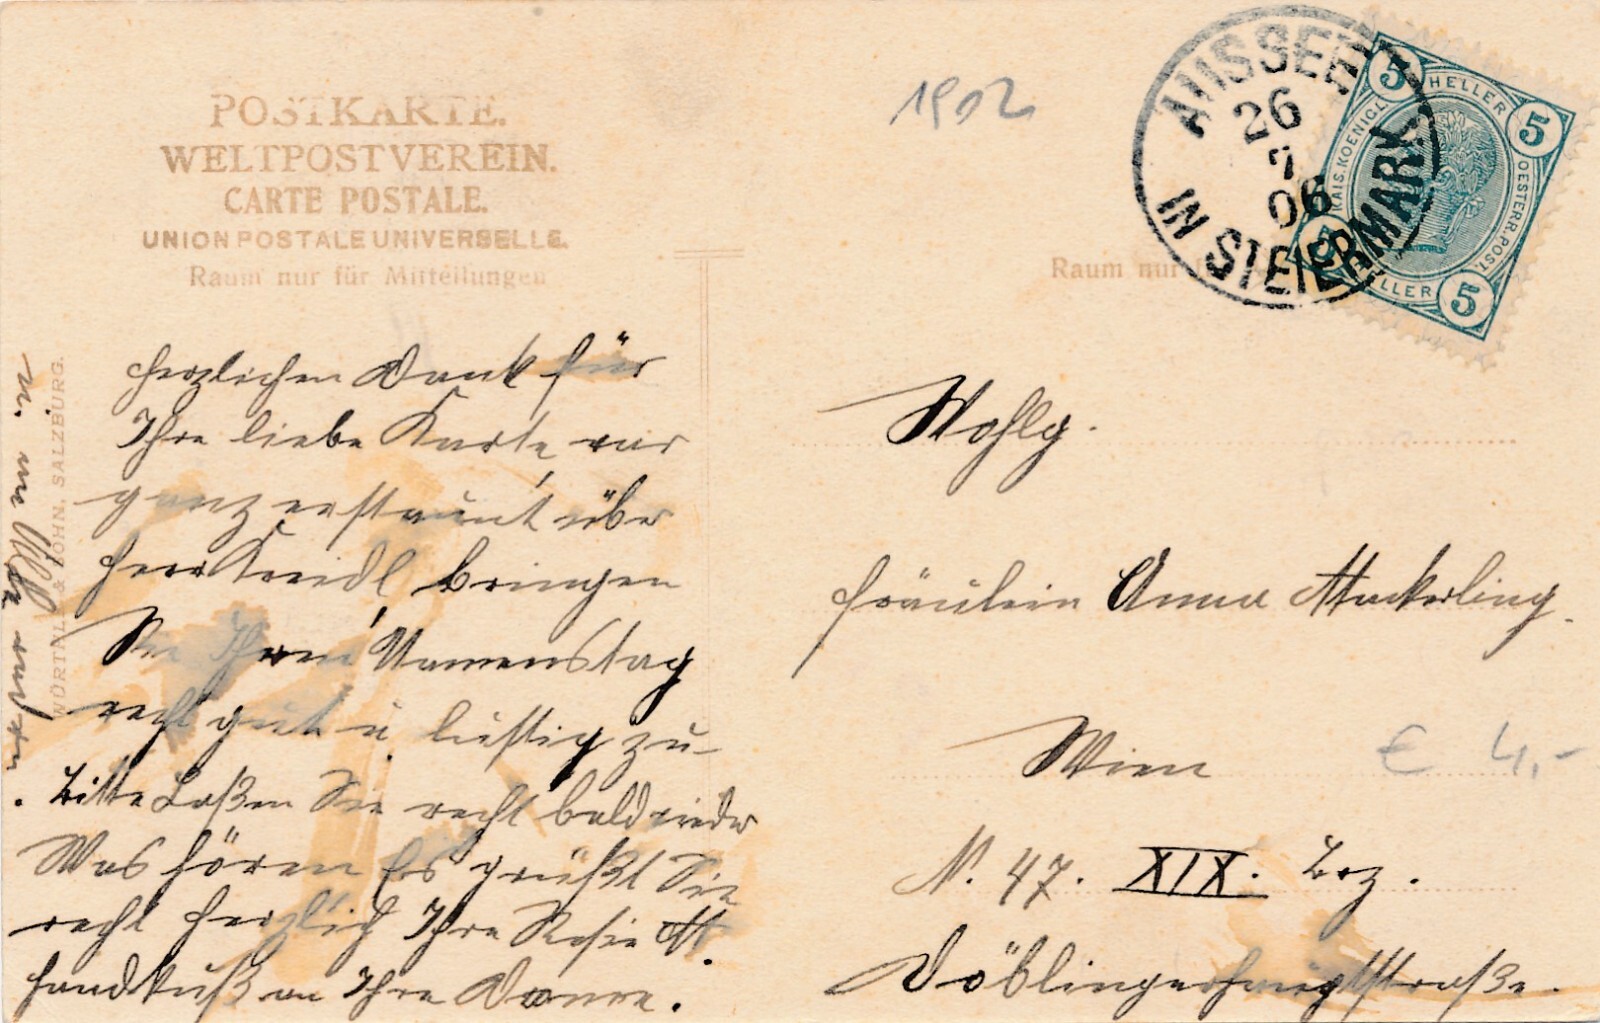 POSTKARTE.
WELTPOSTVEREIN.
CARTE POSTALE.
UNION POSTALE UNIVERSELLE.
Raum nur für Mitteilungen
1902
AUSSEE
26
7
06
IN STEIERMARK
5 HELLER 5
KAIS. KOENIGL. OESTERR. POST.
HELLER 5
Raum nur
herzlichen Dank für
Ihre liebe Karte war
ganz erstaunt über
Herr Kreidl bringen
Sie Ihren Namenstag
recht gut u lustig zu-
. Bitte Laßen Sie recht bald wieder
Was hören Es grüßt Sie
recht herzlich Ihre Rosie M.
Handkuß an Ihre
u. an Alle
WÜRTHLE & SOHN, SALZBURG.
Wohlg.
Fräulein Anna Mackerling.
Wien
€ 4,-
N. 47. XIX. Bez.
Döblingerhauptstraße.